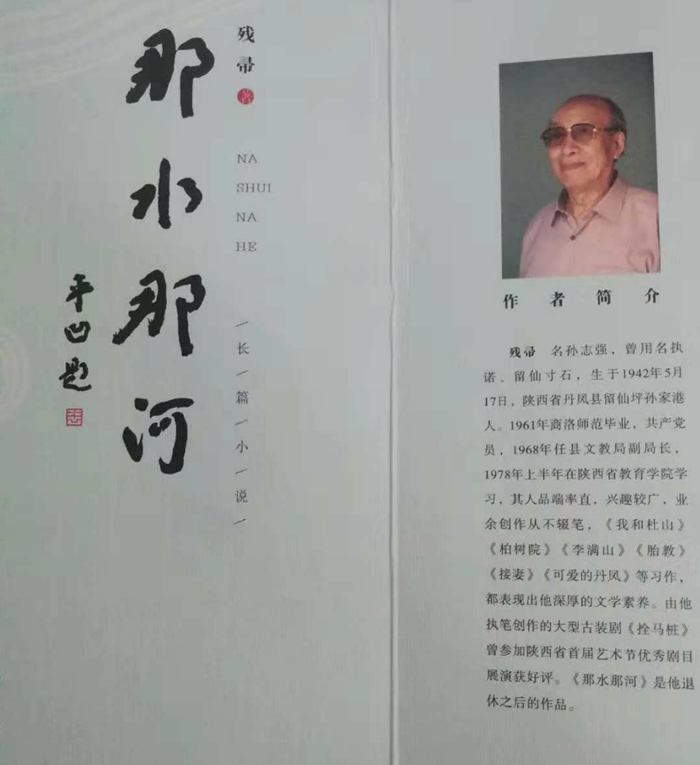 残帚 著
NA
SHUI
NA
HE
那水那河
平凹题
|长|篇|小|说|
作者简介
残帚 名孙志强,曾用名执
诺、留仙寸石,生于1942年5月
17日,陕西省丹凤县留仙坪孙家港
人。1961年商洛师范毕业,共产党
员,1968年任县文教局副局长,
1978年上半年在陕西省教育学院学
习,其人品端率直,兴趣较广,业
余创作从不辍笔,《我和杜山》
《柏树院》《李满山》《胎教》
《接妻》《可爱的丹凤》等习作,
都表现出他深厚的文学素养。由他
执笔创作的大型古装剧《拴马桩》
曾参加陕西省首届艺术节优秀剧目
展演获好评。《那水那河》是他退
休之后的作品。